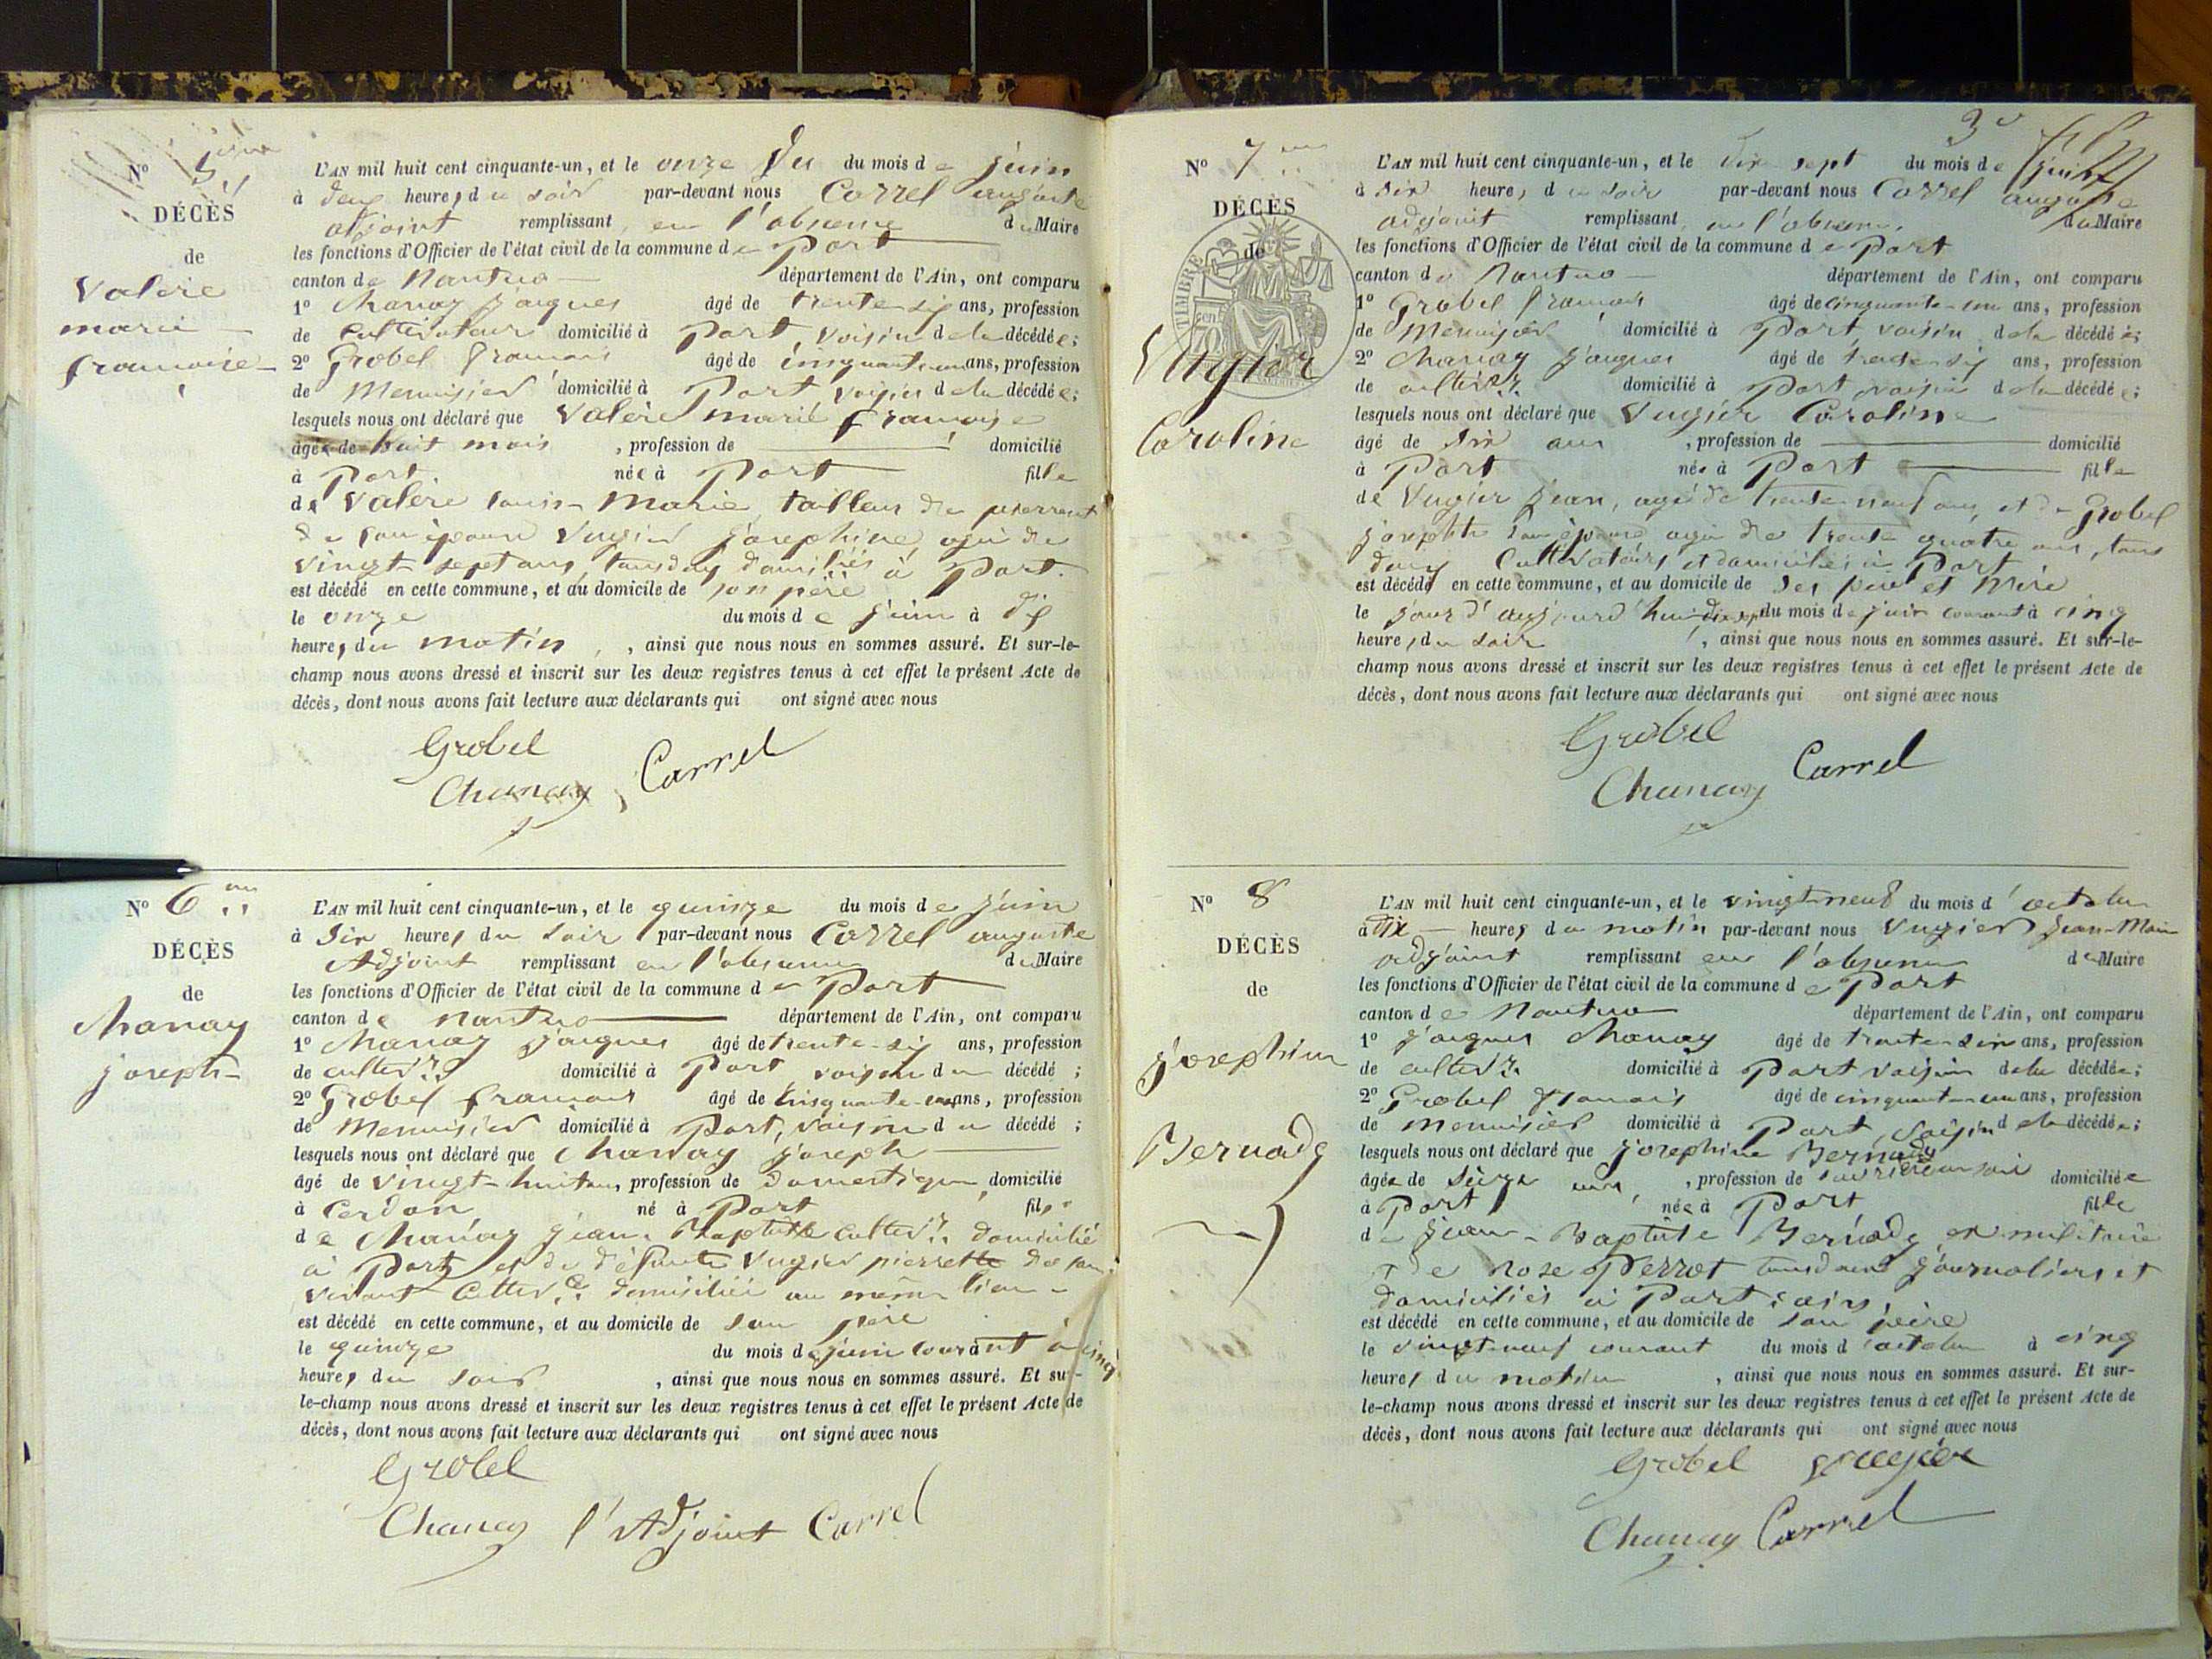 N° 5
DÉCÈS
de
Valère
marie
francoise
L'AN mil huit cent cinquante-un, et le onze du mois de juin
à deux heures du soir par-devant nous Carrel auguste
adjoint remplissant en l'absence du Maire
les fonctions d'Officier de l'état civil de la commune de Port
canton de Nantua département de l'Ain, ont comparu
1° Chanay Jaques âgé de trente six ans, profession
de cultivateur domicilié à Port, voisin de la décédée;
2° Grobel francois âgé de cinquante un ans, profession
de Menuisier domicilié à Port voisin de la décédée;
lesquels nous ont déclaré que Valère marie francoise
âgée de huit mois, profession de domicilié
à Port née à Port fille
de Valère Louis Marie, tailleur de pierre et
de son épouse Vugier Josephine agée de
vingt sept ans, tous deux domiciliés à Port.
est décédé en cette commune, et au domicile de son père
le onze du mois de juin à dix
heures du matin, ainsi que nous nous en sommes assuré. Et sur-le-
champ nous avons dressé et inscrit sur les deux registres tenus à cet effet le présent Acte de
décès, dont nous avons fait lecture aux déclarants qui ont signé avec nous
Grobel
Chanay Carrel
N° 6
DÉCÈS
de
Chanay
joseph
L'AN mil huit cent cinquante-un, et le quinze du mois de juin
à six heures du soir par-devant nous Carrel auguste
Adjoint remplissant en l'absence du Maire
les fonctions d'Officier de l'état civil de la commune de Port
canton de Nantua département de l'Ain, ont comparu
1° Chanay Jaques âgé de trente-six ans, profession
de cultivr domicilié à Port voisin du décédé;
2° Grobel francois âgé de cinquante-un ans, profession
de Menuisier domicilié à Port, voisin du décédé;
lesquels nous ont déclaré que Chanay joseph
âgé de vingt-huit ans, profession de domestique, domicilié
à Cerdon né à Port fils
de Chanay Jean-Baptiste cultivr domicilié
à Port et de défunte Vugier pierrette de son
vivant cultivce domiciliée au même lieu
est décédé en cette commune, et au domicile de son père
le quinze du mois de juin courant à cinq
heures du soir, ainsi que nous nous en sommes assuré. Et sur-
le-champ nous avons dressé et inscrit sur les deux registres tenus à cet effet le présent Acte de
décès, dont nous avons fait lecture aux déclarants qui ont signé avec nous
Grobel
Chanay l'Adjoint Carrel
3e
N° 7
DÉCÈS
de
TIMBRE
Vugier
Caroline
L'AN mil huit cent cinquante-un, et le dix sept du mois de juin
à six heures du soir par-devant nous Carrel auguste
adjoint remplissant en l'absence du Maire
les fonctions d'Officier de l'état civil de la commune de Port
canton de Nantua département de l'Ain, ont comparu
1° Grobel francois âgé de cinquante-un ans, profession
de Menuisier domicilié à Port voisin de la décédée;
2° Chanay Jaques âgé de trente six ans, profession
de cultivr domicilié à Port voisin de la décédée;
lesquels nous ont déclaré que Vugier Caroline
âgé de six ans, profession de domicilié
à Port née à Port fille
de Vugier Jean, agé de trente neuf ans, et de Grobel
josephte son épouse agée de trente quatre ans, tous
deux Cultivateurs et domiciliés à Port
est décédé en cette commune, et au domicile de ses père et Mère
le jour d'aujourd'hui dix sept du mois de juin courant à cinq
heures du soir, ainsi que nous nous en sommes assuré. Et sur-le-
champ nous avons dressé et inscrit sur les deux registres tenus à cet effet le présent Acte de
décès, dont nous avons fait lecture aux déclarants qui ont signé avec nous
Grobel
Chanay Carrel
N° 8
DÉCÈS
de
josephine
Bernady
L'AN mil huit cent cinquante-un, et le vingt-neuf du mois d'octobre
à dix heures du matin par-devant nous Vugier Jean-Marie
adjoint remplissant en l'absence du Maire
les fonctions d'Officier de l'état civil de la commune de Port
canton de Nantua département de l'Ain, ont comparu
1° Jaques Chanay âgé de trente-six ans, profession
de cultivr domicilié à Port voisin de la décédée;
2° Grobel francois âgé de cinquante-un ans, profession
de menuisier domicilié à Port voisin de la décédée;
lesquels nous ont déclaré que josephine Bernady
âgée de seize ans, profession de ouvrière en soie domiciliée
à Port née à Port fille
de Jean-Baptiste Bernady ex militaire
et de Rose Perrot tous deux journaliers et
domiciliés à Port
est décédé en cette commune, et au domicile de son père
le vingt-neuf courant du mois d'octobre à cinq
heures du matin, ainsi que nous nous en sommes assuré. Et sur-
le-champ nous avons dressé et inscrit sur les deux registres tenus à cet effet le présent Acte de
décès, dont nous avons fait lecture aux déclarants qui ont signé avec nous
Grobel Vugier
Chanay Carrel